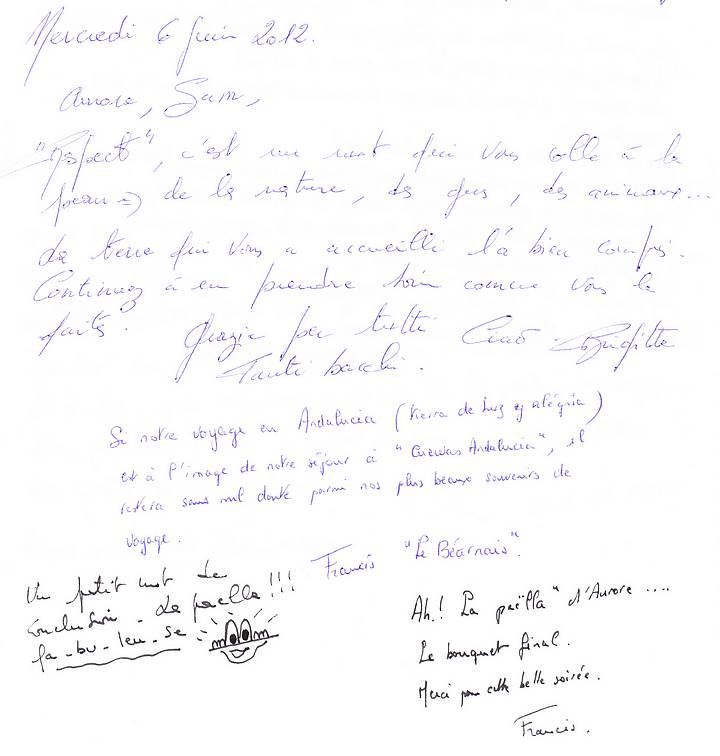 Mercredi 6 Juin 2012.
Aurore, Sam,
"Respect", c'est un mot qui vous colle à la
peau => de la nature, des gens, des animaux...
La terre qui vous a accueilli l'a bien compris.
Continuez à en prendre soin comme vous le
faites.
Grazie per tutti Ciao Brigitte
Tanti bacchi.
Si notre voyage en Andalucia (tierra de luz y alégria)
est à l'image de notre séjour à "Cuevas Andalucia", il
restera sans nul doute parmi nos plus beaux souvenirs de
voyage.
Francis "Le Béarnais".
Un petit mot de
conclusion - La paella !!!
fa-bu-leu-se
Ah.! La paëlla" d'Aurore ....
Le bouquet final.
Merci pour cette belle soirée.
Francis.